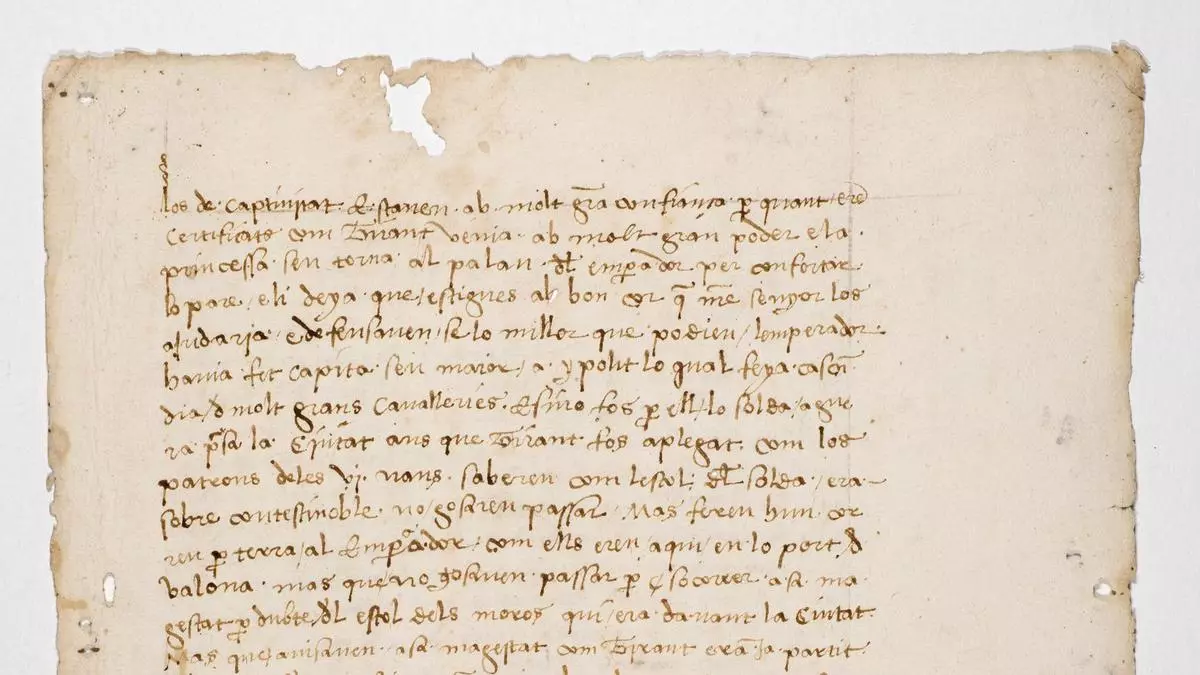 los de captiuitat. E stauen. ab. molt grã confiança ꝑ quant erẽ
certificats com Tirant venia. ab molt gran poder e la.
princessa. sen torna. al palau. dl̃ emꝑador per confortar.
lo pare / e li deya. que / estigues ab bon cor q̃ nr̃e senyor los
aiudaria. e defensauen. se lo millor que podien / lemperador.
hauia. fet capita. seu maior / a. ypolit lo qual feya. cascũ
dia / d molt grans caualleries. E sino fos ꝑ ell / lo solda / ague
ra pr̃sa la. Ciutat ans que Tirant. fos aplegat. com los
patrons deles vj. naus. saberen com lestol. dl̃ solda / era.
sobre contestinoble. no / gosaren passar. Mas feren hun. cor
reu ꝑ terra / al Emꝑador / com ells eren / aqui / en lo port / d
valona. mas que no gosauen. passar ꝑ socorrer. a sa. ma
gestat ꝑ dubte / dl̃ estol dels moros qui / era. dauant la Ciutat
Mas que / auisauen. a sa. magestat com Tirant erã ja. partit.